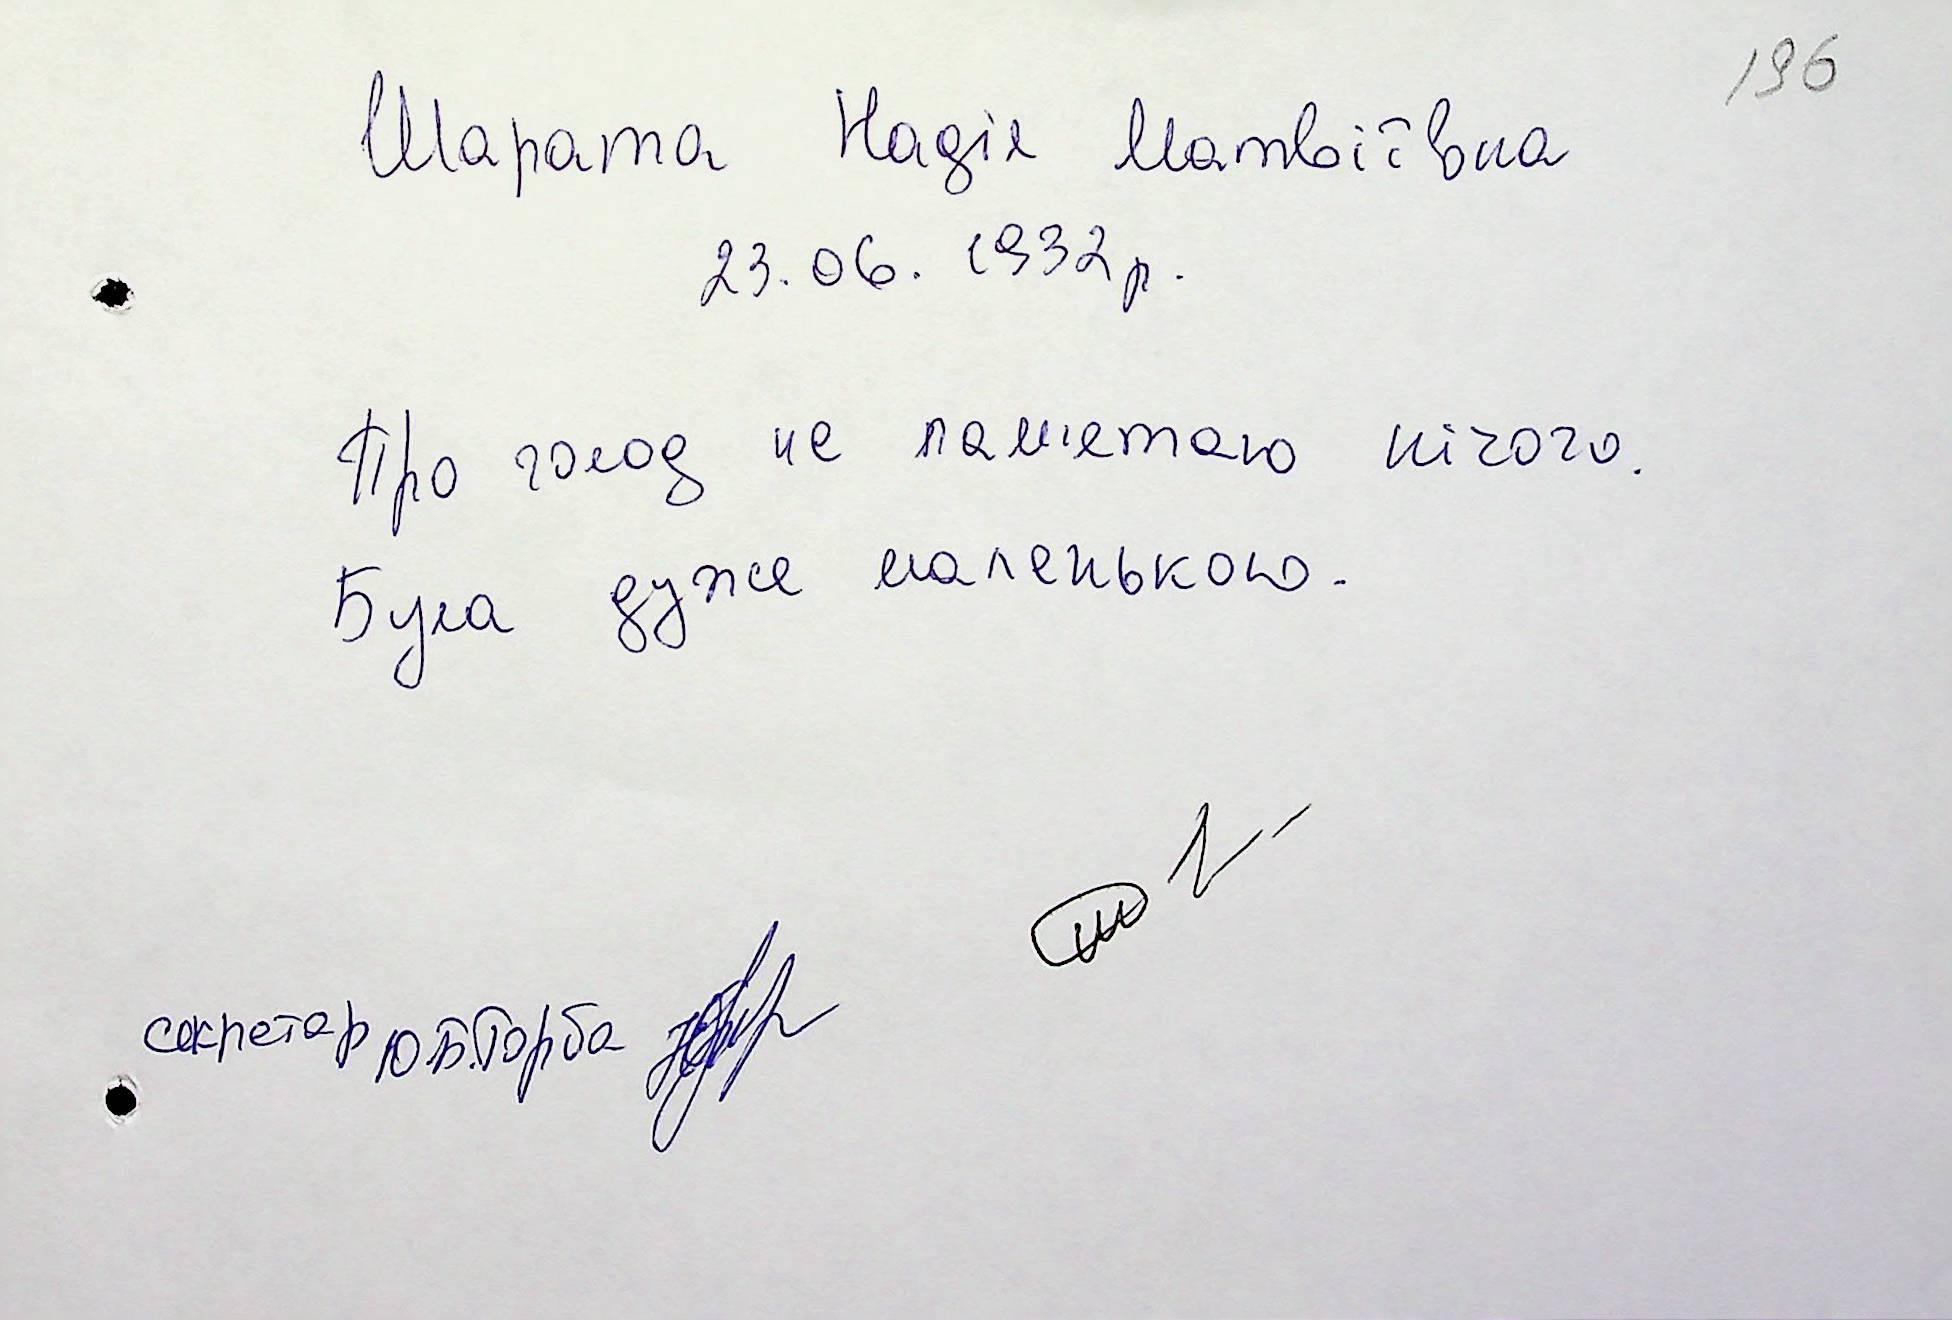 196
Шарата Надія Матвіївна
23.06.1932р.
Про голод не памʼетаю нічого.
Була дуже маленькою.
секретар Ю.Б.Горба